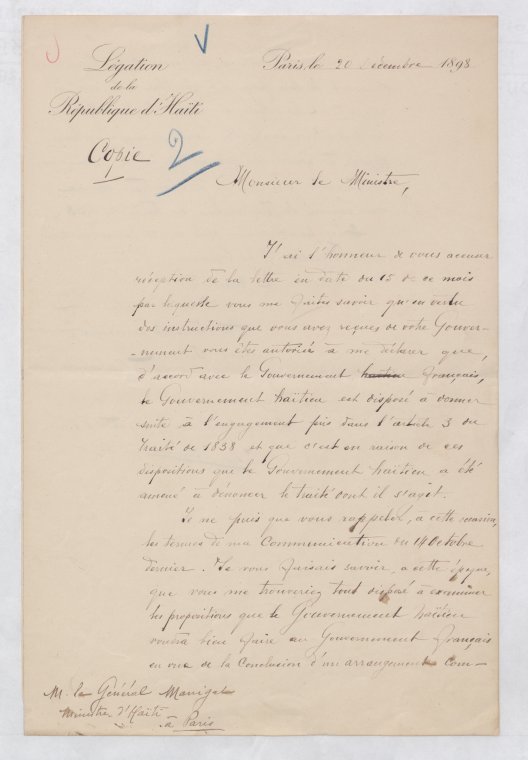 Légation
de la
République d'Haïti
Paris, le 20 Décembre 1898
Copie
2
Monsieur le Ministre,
J'ai l'honneur de vous accuser
réception de la lettre en date du 15 de ce mois
par laquelle vous me faites savoir qu'en vertu
des instructions que vous avez reçues de votre Gouver-
-nement vous êtes autorisé à me déclarer que,
d'accord avec le Gouvernement haïtien français,
le Gouvernement haïtien est disposé à donner
suite à l'engagement pris dans l'article 3 du
traité de 1838 et que c'est en raison de ces
dispositions que le Gouvernement haïtien a été
amené à dénoncer le traité dont il s'agit.
Je ne puis que vous rappeler, à cette occasion,
les termes de ma communication du 14 Octobre
dernier. Je vous faisais savoir, à cette époque,
que vous me trouveriez tout disposé à examiner
les propositions que le Gouvernement haïtien
voudra bien faire au Gouvernement français
en vue de la conclusion d'un arrangement com-
M. le Général Manigat
Ministre d'Haïti
à Paris